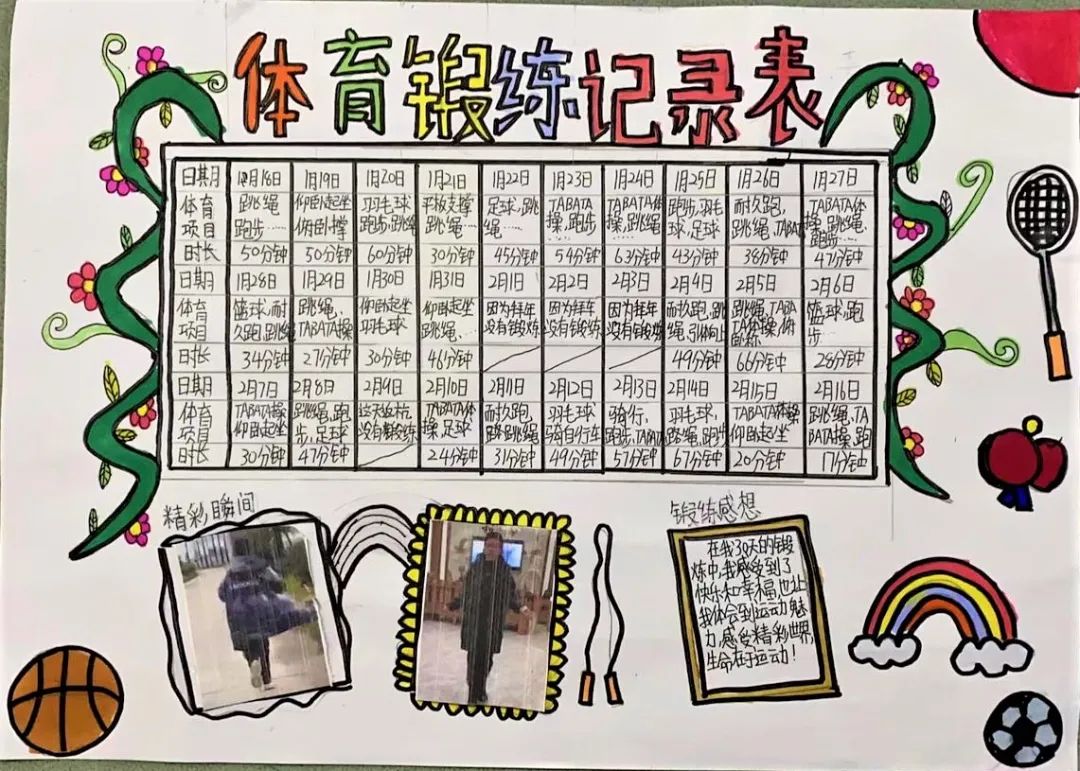 体育锻练记录表
日期 1月18日 1月19日 1月20日 1月21日 1月22日 1月23日 1月24日 1月25日 1月26日 1月27日
体育项目 跳绳跑步…… 仰卧起坐俯卧撑 羽毛球跑步,跳绳 平板支撑跳绳…… 足球,跳绳 TABATA操,跑步 TABATA体操,跳绳…… 跑步,羽毛球,足球 耐久跑,跳绳,TABATA TABATA体操,跳绳,跑步……
时长 50分钟 50分钟 60分钟 30分钟 45分钟 54分钟 63分钟 43分钟 38分钟 47分钟
日期 1月28日 1月29日 1月30日 1月31日 2月1日 2月2日 2月3日 2月4日 2月5日 2月6日
体育项目 篮球,耐久跑,跳绳 跳绳,TABATA操 仰卧起坐羽毛球 仰卧起坐跳绳…… 因为拜年没有锻炼 因为拜年没有锻炼 因为拜年没有锻炼 耐久跑,跳绳,引体向上 跳绳,TABATA体操 篮球,跑步……
时长 34分钟 27分钟 30分钟 46分钟 49分钟 66分钟 28分钟
日期 2月7日 2月8日 2月9日 2月10日 2月11日 2月12日 2月13日 2月14日 2月15日 2月16日
体育项目 TABATA操仰卧起坐 跳绳,跑步,足球 这天返杭没有锻炼 TABATA体操,足球 耐久跑,跳绳 羽毛球骑自行车 骑行,跑步,TABATA 羽毛球,跳绳,跑步 TABATA体操仰卧起坐 跳绳,TABATA操,跑
时长 30分钟 47分钟 24分钟 31分钟 49分钟 57分钟 67分钟 20分钟 17分钟
精彩瞬间
锻练感想
在我30天的锻
炼中,我感受到了
快乐和幸福,也让
我体会到运动魅
力,感受精彩世界,
生命在于运动!